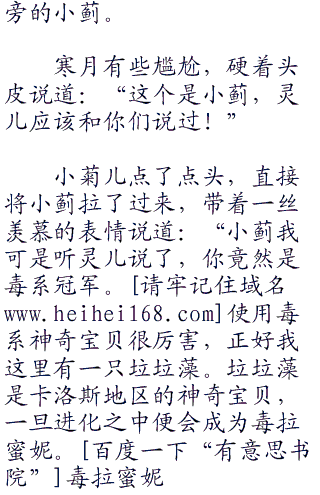 旁的小蓟。
寒月有些尴尬，硬着头
皮说道：“这个是小蓟，灵
儿应该和你们说过！”
小菊儿点了点头，直接
将小蓟拉了过来，带着一丝
羡慕的表情说道：“小蓟我
可是听灵儿说了，你竟然是
毒系冠军。[请牢记住域名
www.heihei168.com]使用毒
系神奇宝贝很厉害，正好我
这里有一只垃垃藻。垃垃藻
是卡洛斯地区的神奇宝贝，
一旦进化之中便会成为毒拉
蜜妮。[百度一下“有意思书
院”]毒拉蜜妮